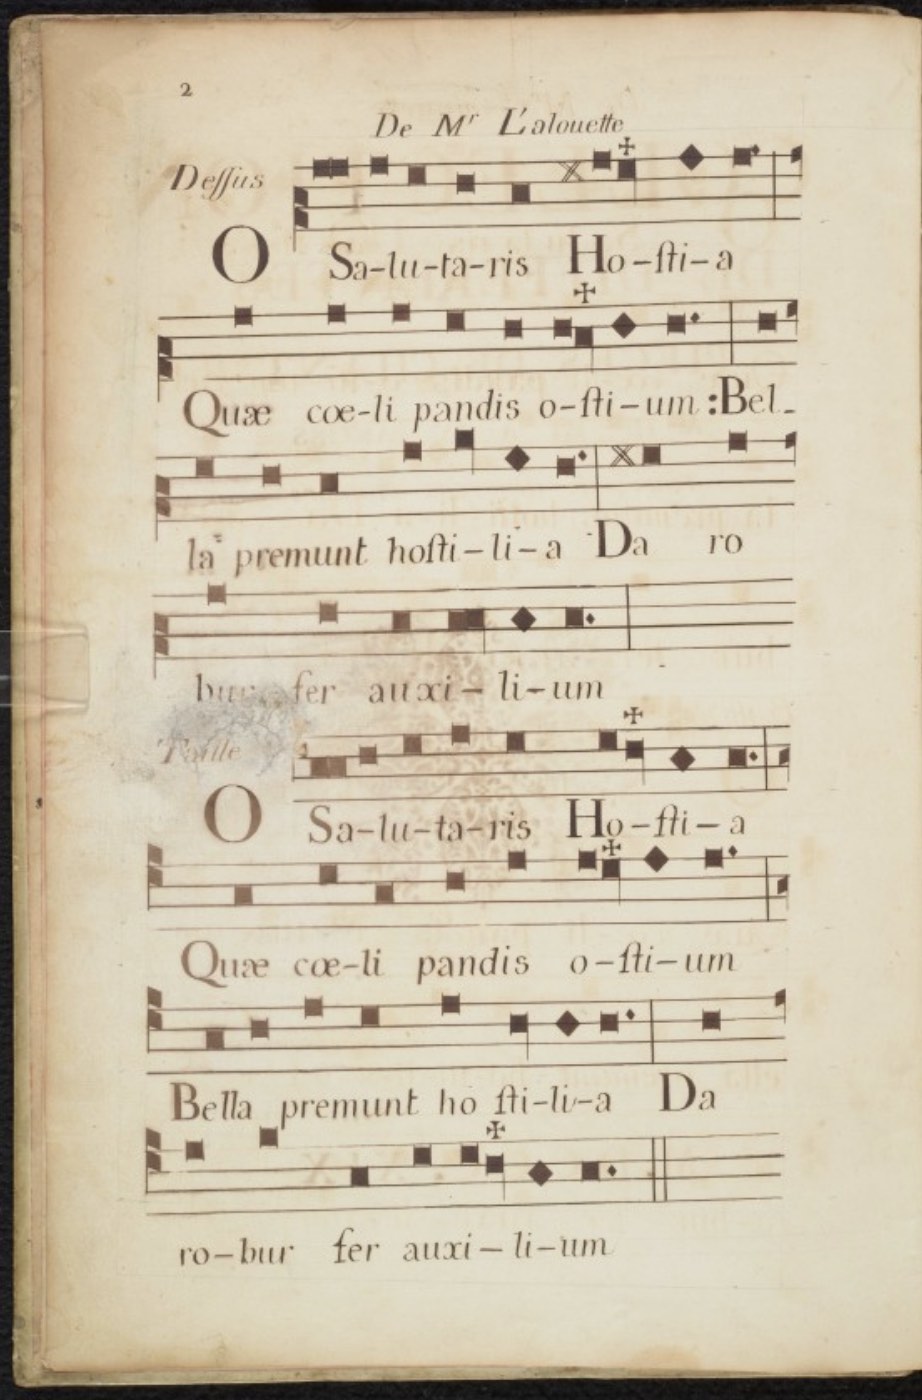 2
De Mr L'alouette
Dessus
O Sa-lu-ta-ris Ho-sti-a
Quæ cœ-li pandis o-sti-um : Bel-
la premunt hosti-li-a Da ro
bur fer auxi-li-um
Taille
O Sa-lu-ta-ris Ho-sti-a
Quæ cœ-li pandis o-sti-um
Bella premunt ho sti-li-a Da
ro-bur fer auxi-li-um